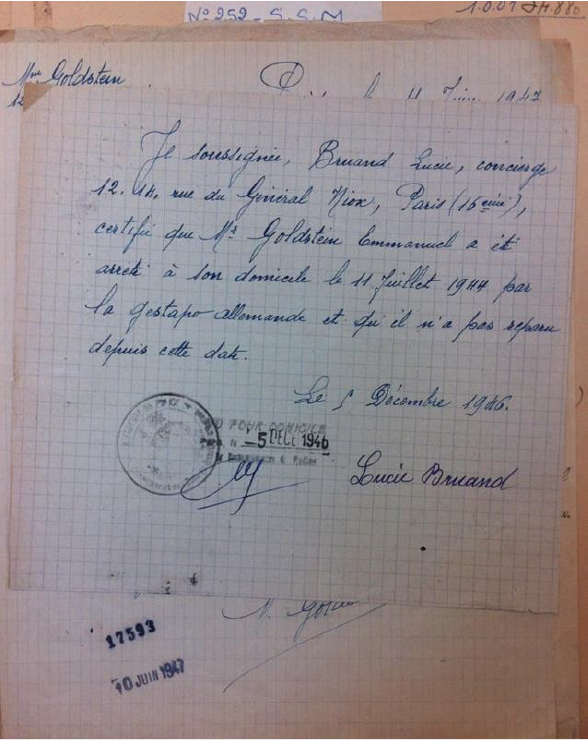 N° 252 - S.S.M
Mme Goldstein
11 Juin 1947
12
Je soussignée, Bruand Lucie, concierge
12.14. rue du Général Niox, Paris (16ème),
certifie que Mr Goldstein Emmanuel a été
arreté à son domicile le 11 Juillet 1944 par
la gestapo allemande et qu'il n'a pas reparu
depuis cette date.
Le 5 Décembre 1946.
POUR DOMICILE
- 5 DEC 1946
Lucie Bruand
17593
10 JUIN 1947